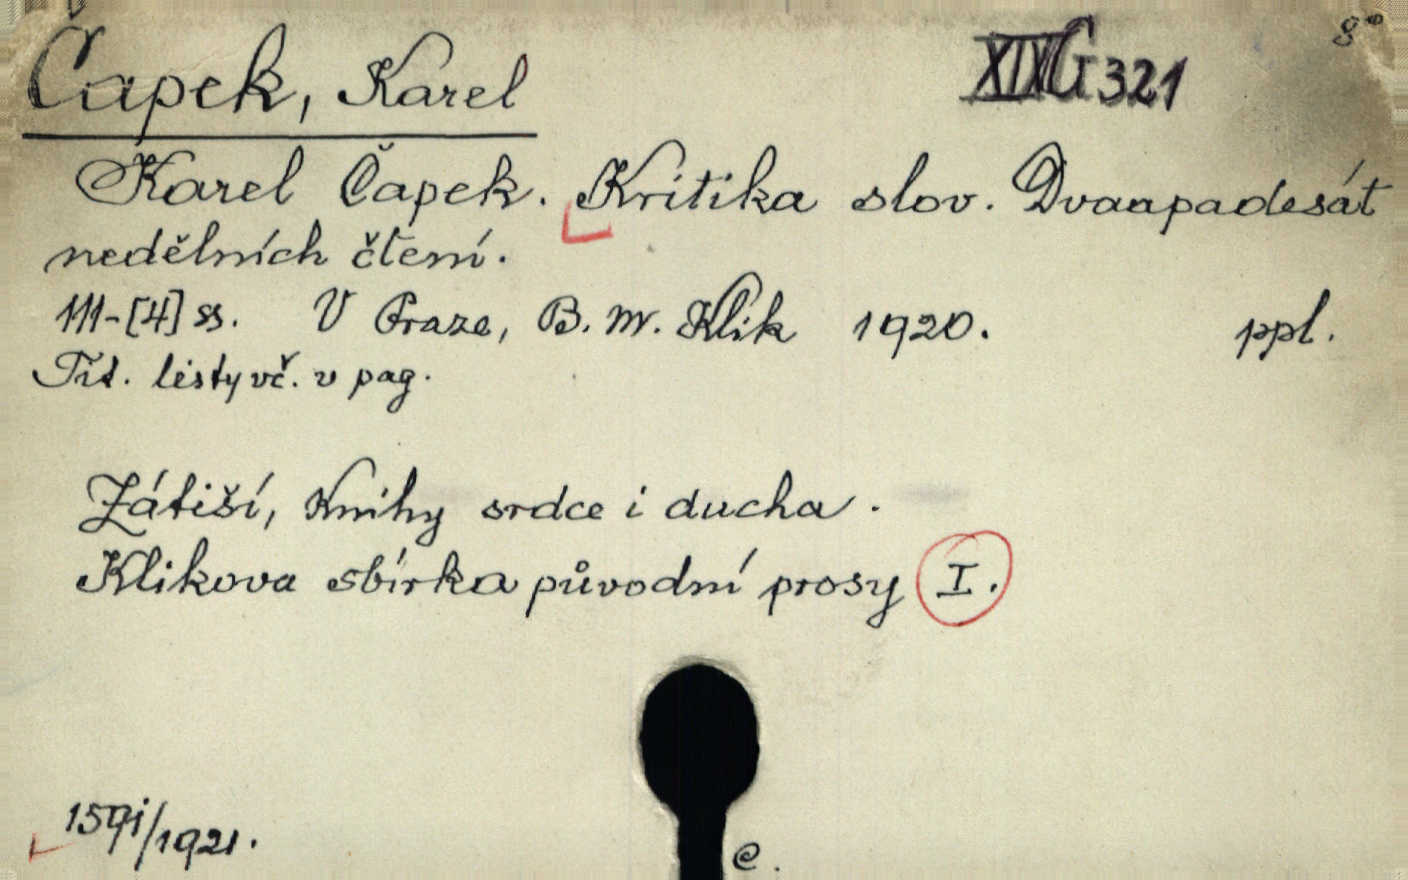 Čapek, Karel
XIXG321
8°
Karel Čapek. Kritika slov. Dvaapadesát
nedělních čtení.
111-[4] ss. V Praze, B. M. Klik 1920. ppl.
Tit. listy vč. v pag.
Zátiší, Knihy srdce i ducha.
Klikova sbírka původní prosy I.
/1921.
e.